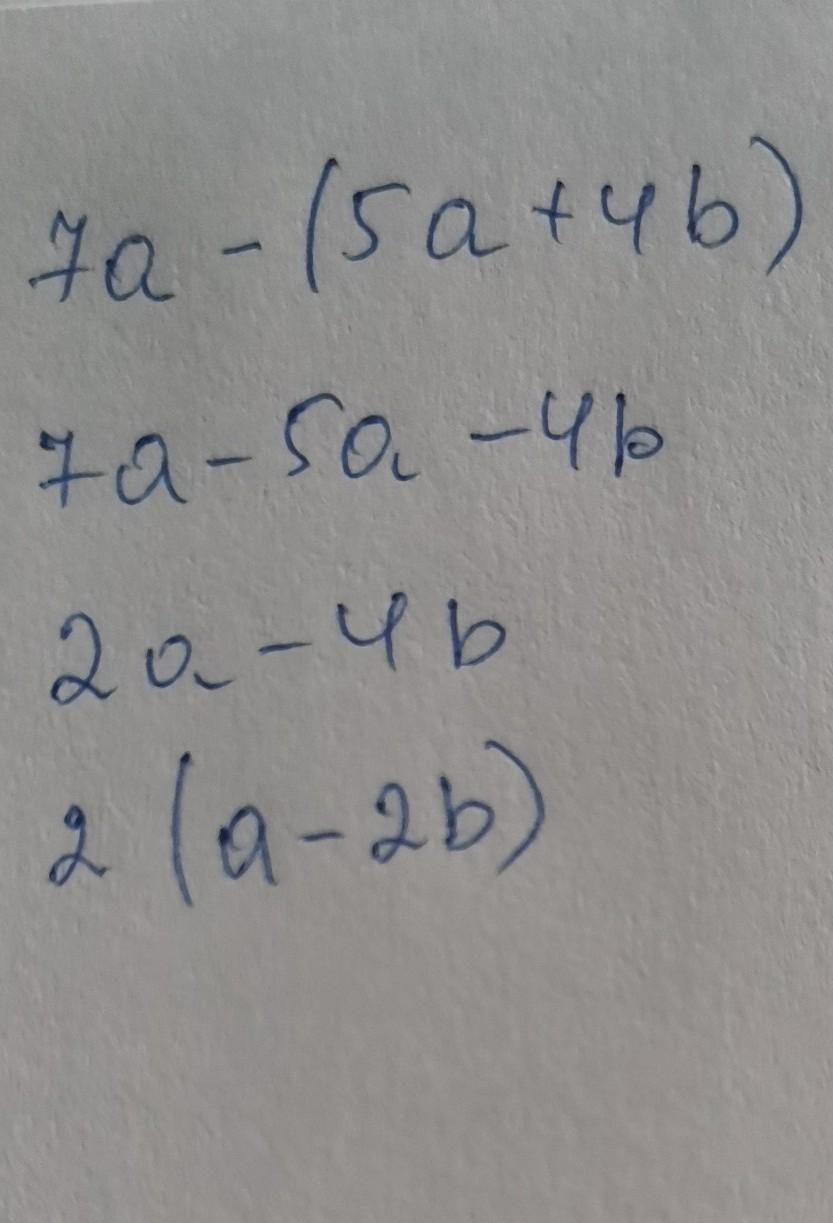 7a - (5a + 4b)
7a - 5a - 4b
2a - 4b
2 (a - 2b)